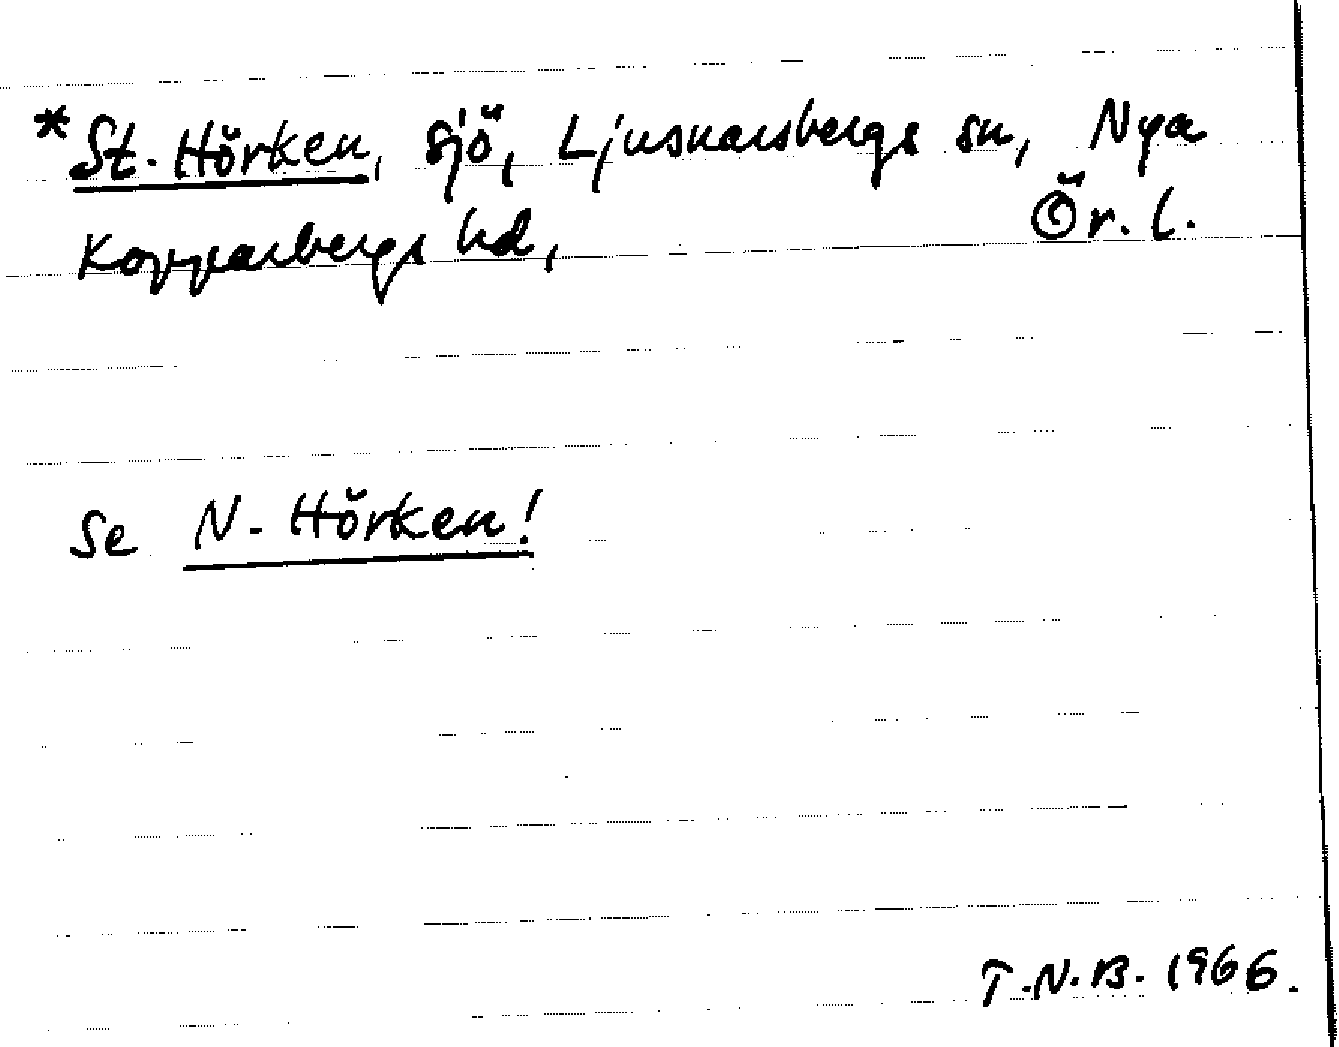 *St. Hörken, sjö, Ljusnarsbergs sn, Nya
Kopparbergs hd, Ör. l.
Se N. Hörken!
T.N.B. 1966.